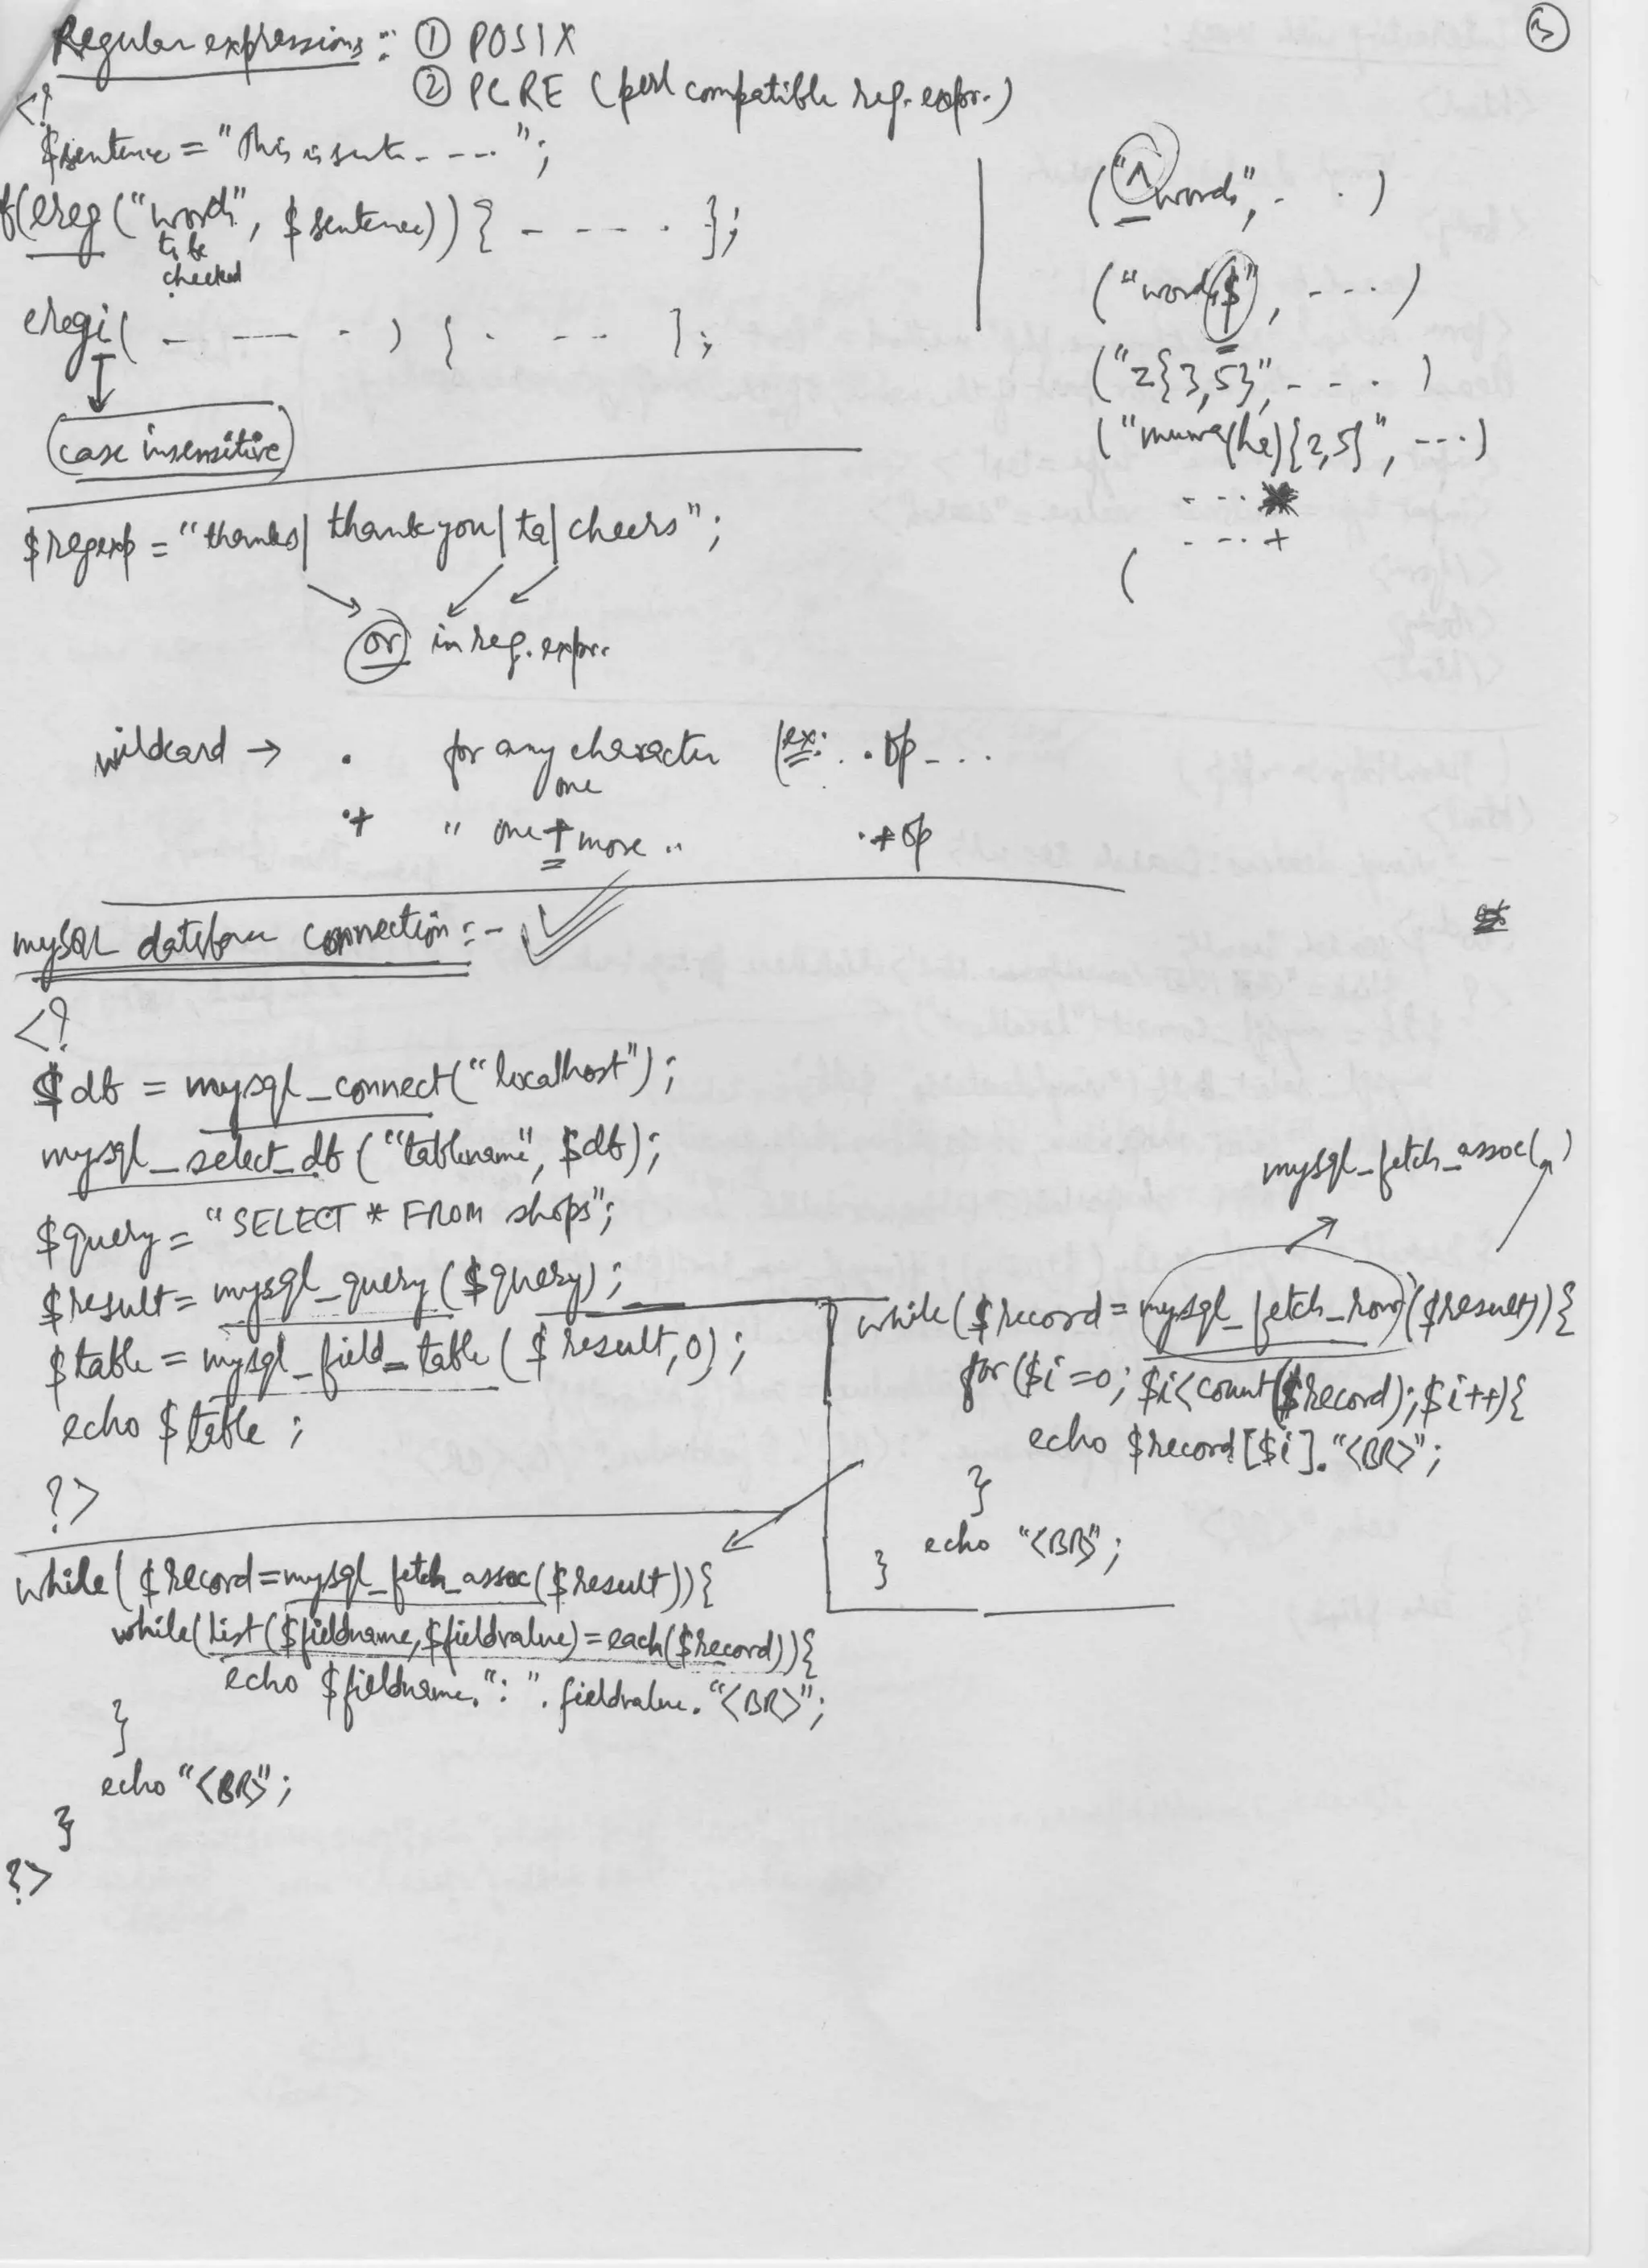 3
Regular expressions :- ① POSIX
② PCRE (perl compatible reg. expr.)
<?
$sentence = "This is sent- - - - ";
if(ereg("word", $sentence)) { - - - - . };
to be
checked
eregi( - - - - ) { . - - - };
case insensitive
("^words", - . . )
("words$", - - - . )
("z{3,5}", - - . )
(" (ha){2,5}", - - - )
- - - *
- - - +
(
$regexp = "thanks| thank you| ta| cheers";
or in reg. expr.
wildcard → . for any character (ex: . . op - . . .
one
.+ " one + more " .+op
mySQL database connection :-
<?
$db = mysql_connect("localhost");
mysql_select_db ("tablename", $db);
$query = "SELECT * FROM shops";
$result = mysql_query ($query);
$table = mysql_field_table ($result,0);
echo $table ;
?>
mysql_fetch_assoc( )
while ($record = mysql_fetch_row ($result)) {
for ($i=0; $i<count($record); $i++){
echo $record[$i]."<BR>";
}
echo "<BR>";
}
while( $record=mysql_fetch_assoc($result)){
while(list($fieldname,$fieldvalue)=each($record)){
echo $fieldname.":".fieldvalue."<BR>";
}
echo "<BR>";
}
?>